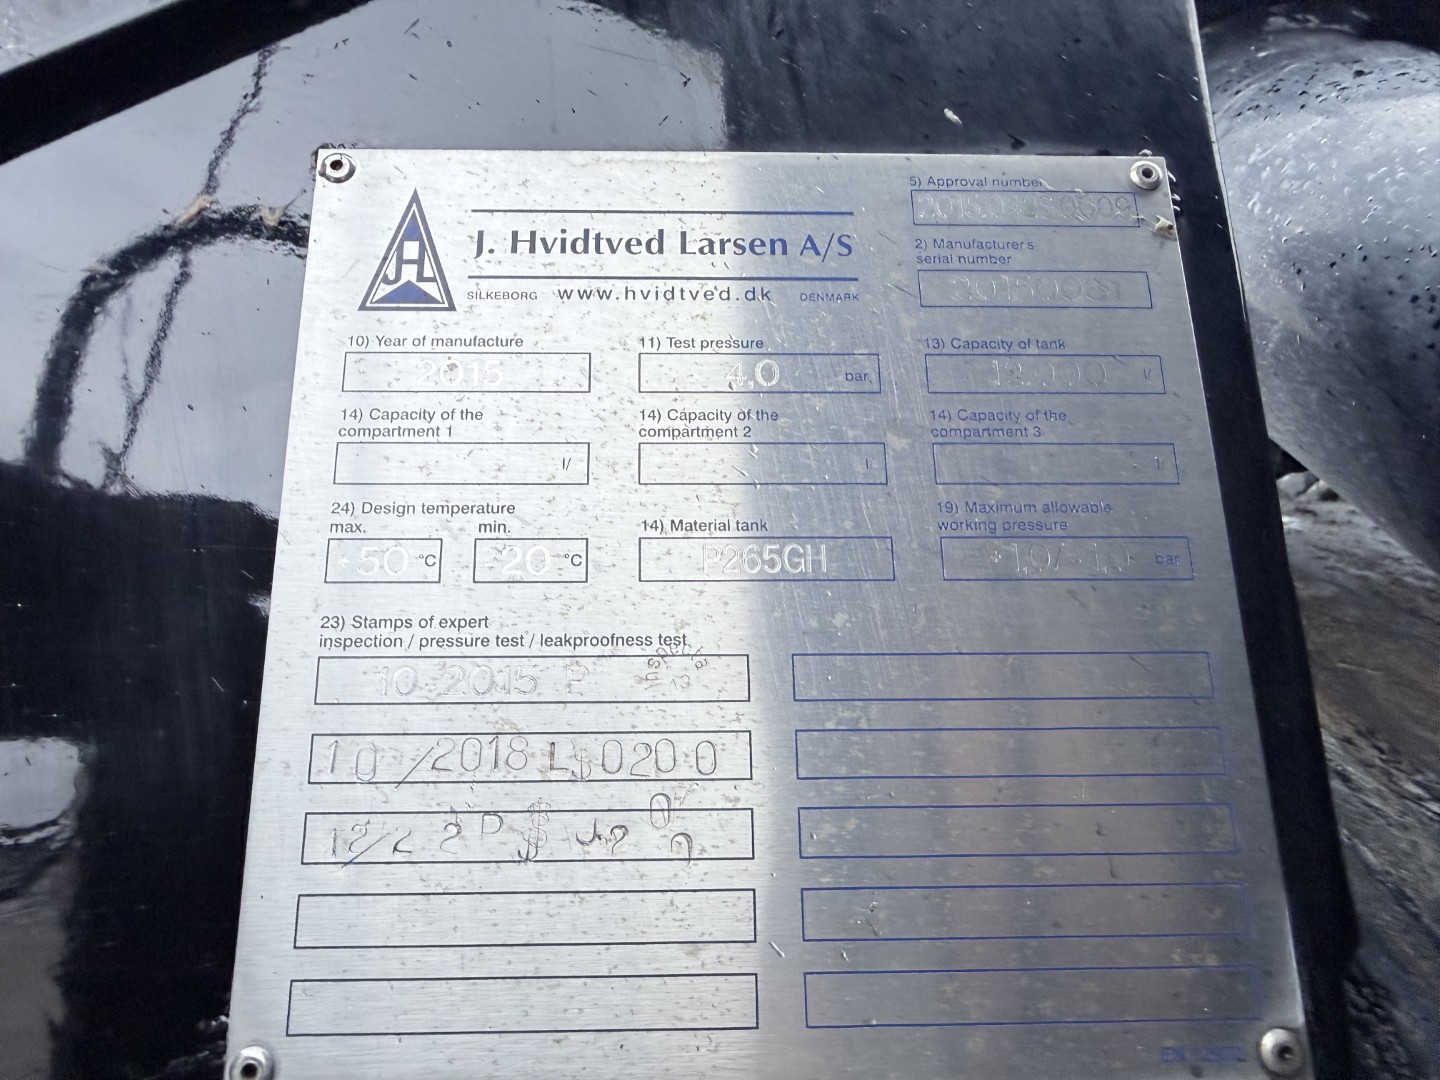 5) Approval number
JHL
J. Hvidtved Larsen A/S
SILKEBORG www.hvidtved.dk DENMARK
2) Manufacturer's
serial number
10) Year of manufacture
2015
11) Test pressure
4,0 bar
13) Capacity of tank
12.000 l/
14) Capacity of the
compartment 1
l/
14) Capacity of the
compartment 2
l
14) Capacity of the
compartment 3
l/
24) Design temperature
max. min.
+50 °C -20 °C
14) Material tank
P265GH
19) Maximum allowable
working pressure
+1,0/-1,0 bar
23) Stamps of expert
inspection / pressure test / leakproofness test
10.2015 P
10/2018 L